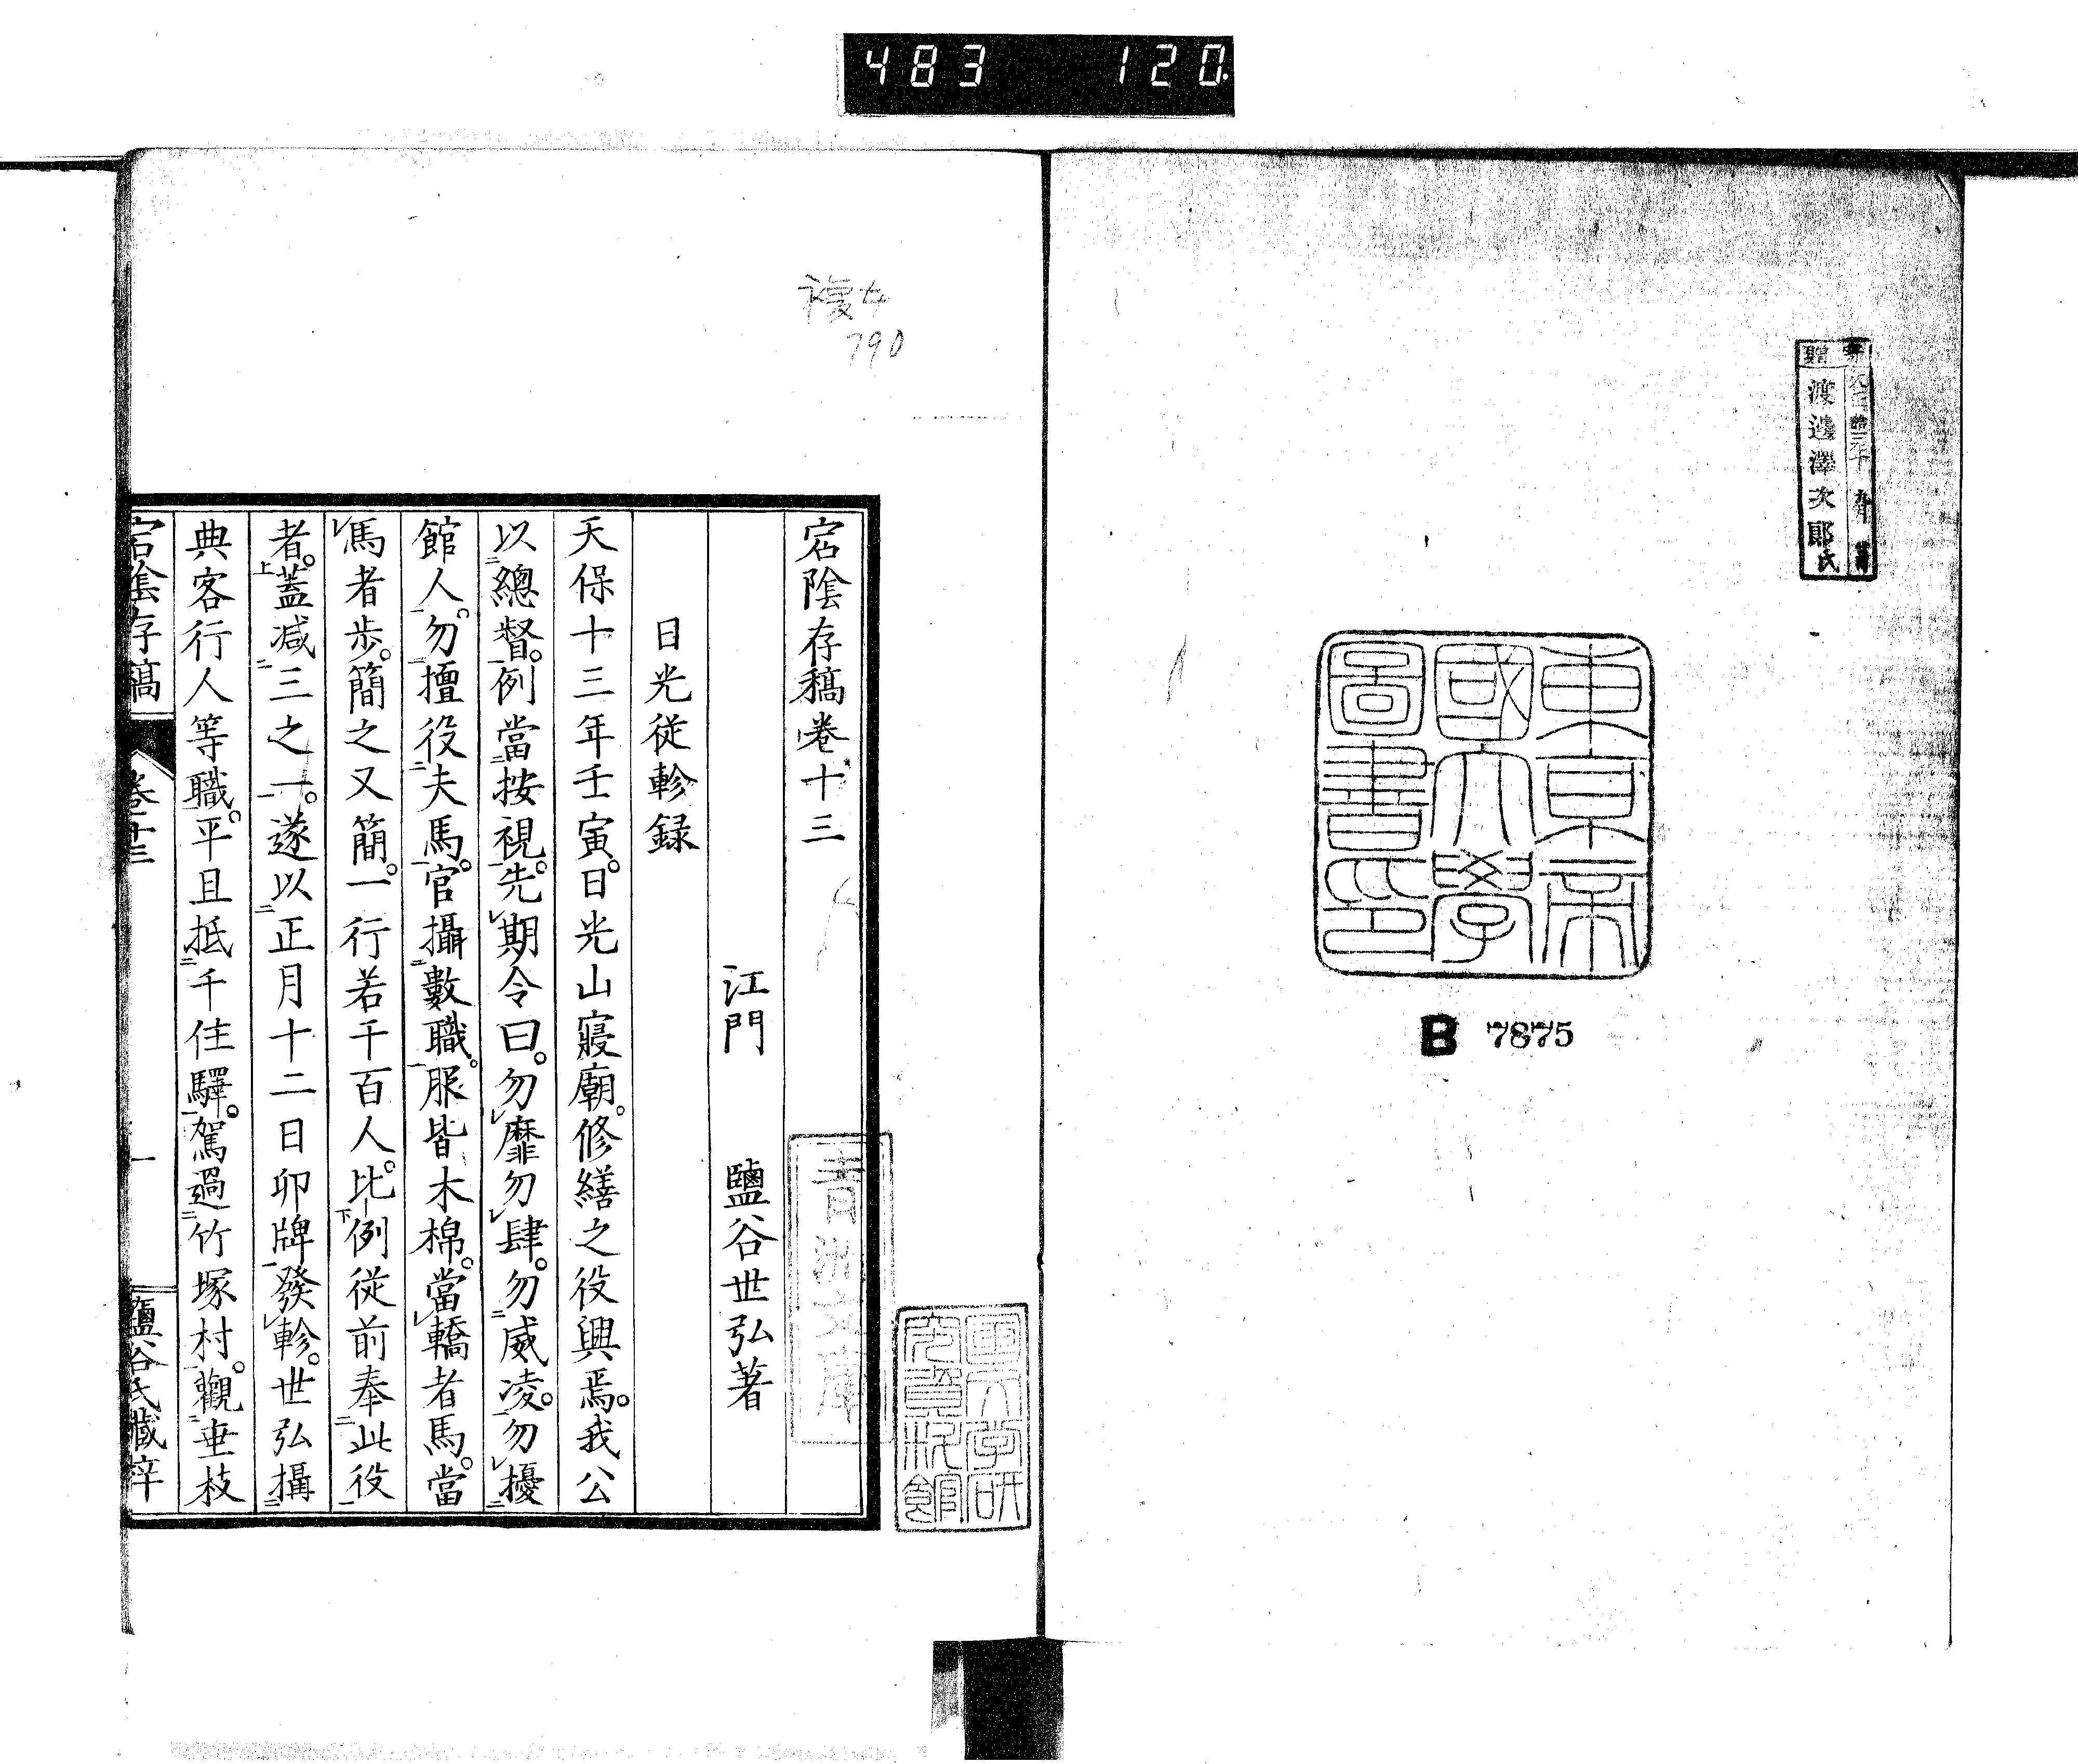 483 120
寄贈
渡邊澤次郎氏
東京帝
國大學
圖書印
B 7875
複女
790
宕陰存稿卷十三
江門 鹽谷世弘著
日光從軫録
天保十三年壬寅。日光山寢廟。修繕之役興焉。我公
以總督。例當按視。先期令曰。勿靡勿肆。勿威凌。勿擾
館人。勿擅役夫馬。官攝數職。服皆木棉。當轎者馬。當
馬者歩。簡之又簡。一行若干百人。比例從前奉此役
者。蓋减三之一。遂以正月十二日卯牌發軫。世弘攝
典客行人等職。平且抵千住驛。駕過竹塚村。觀垂枝
宕陰存稿 卷十三 一 鹽谷氏藏梓
青洲文庫
国文学研
究資料館